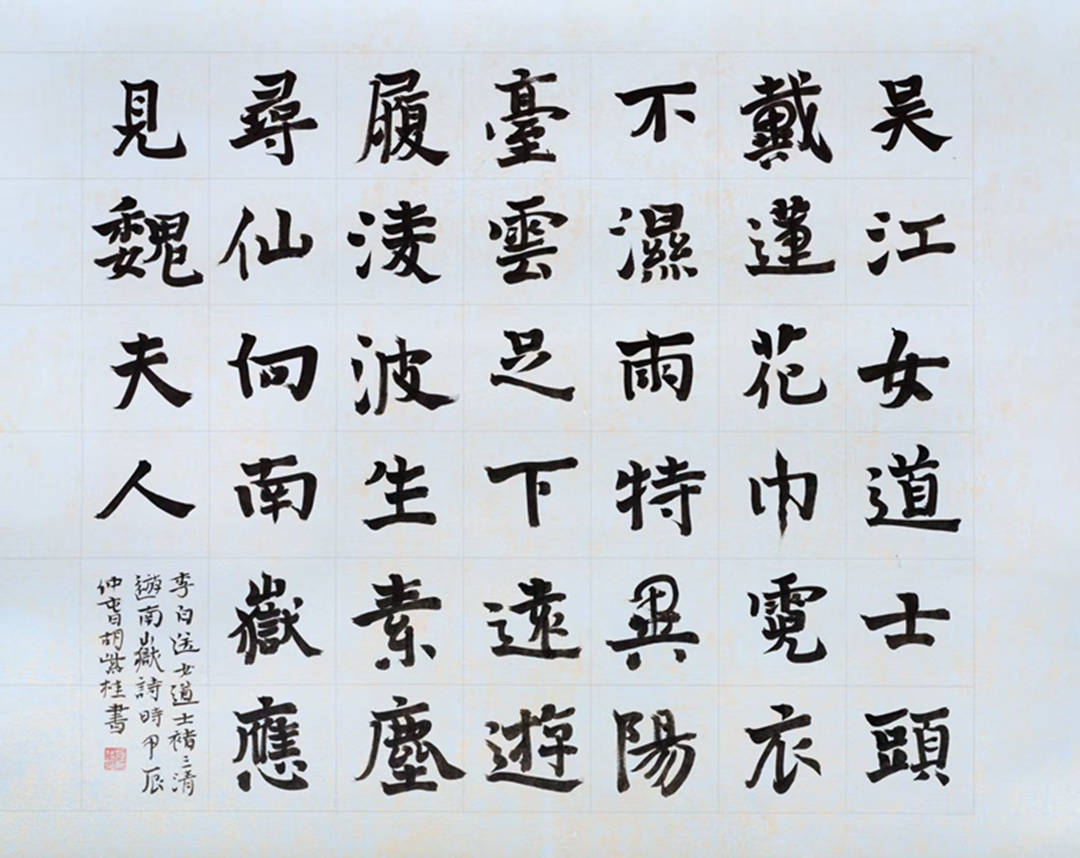 吴江女道士頭
戴蓮花巾霓衣
不濕雨特異陽
臺雲足下遠遊
履淩波生素塵
尋仙向南嶽應
見魏夫人
李白送女道士褚三清
遊南嶽詩時甲辰
仲春胡紫桂書